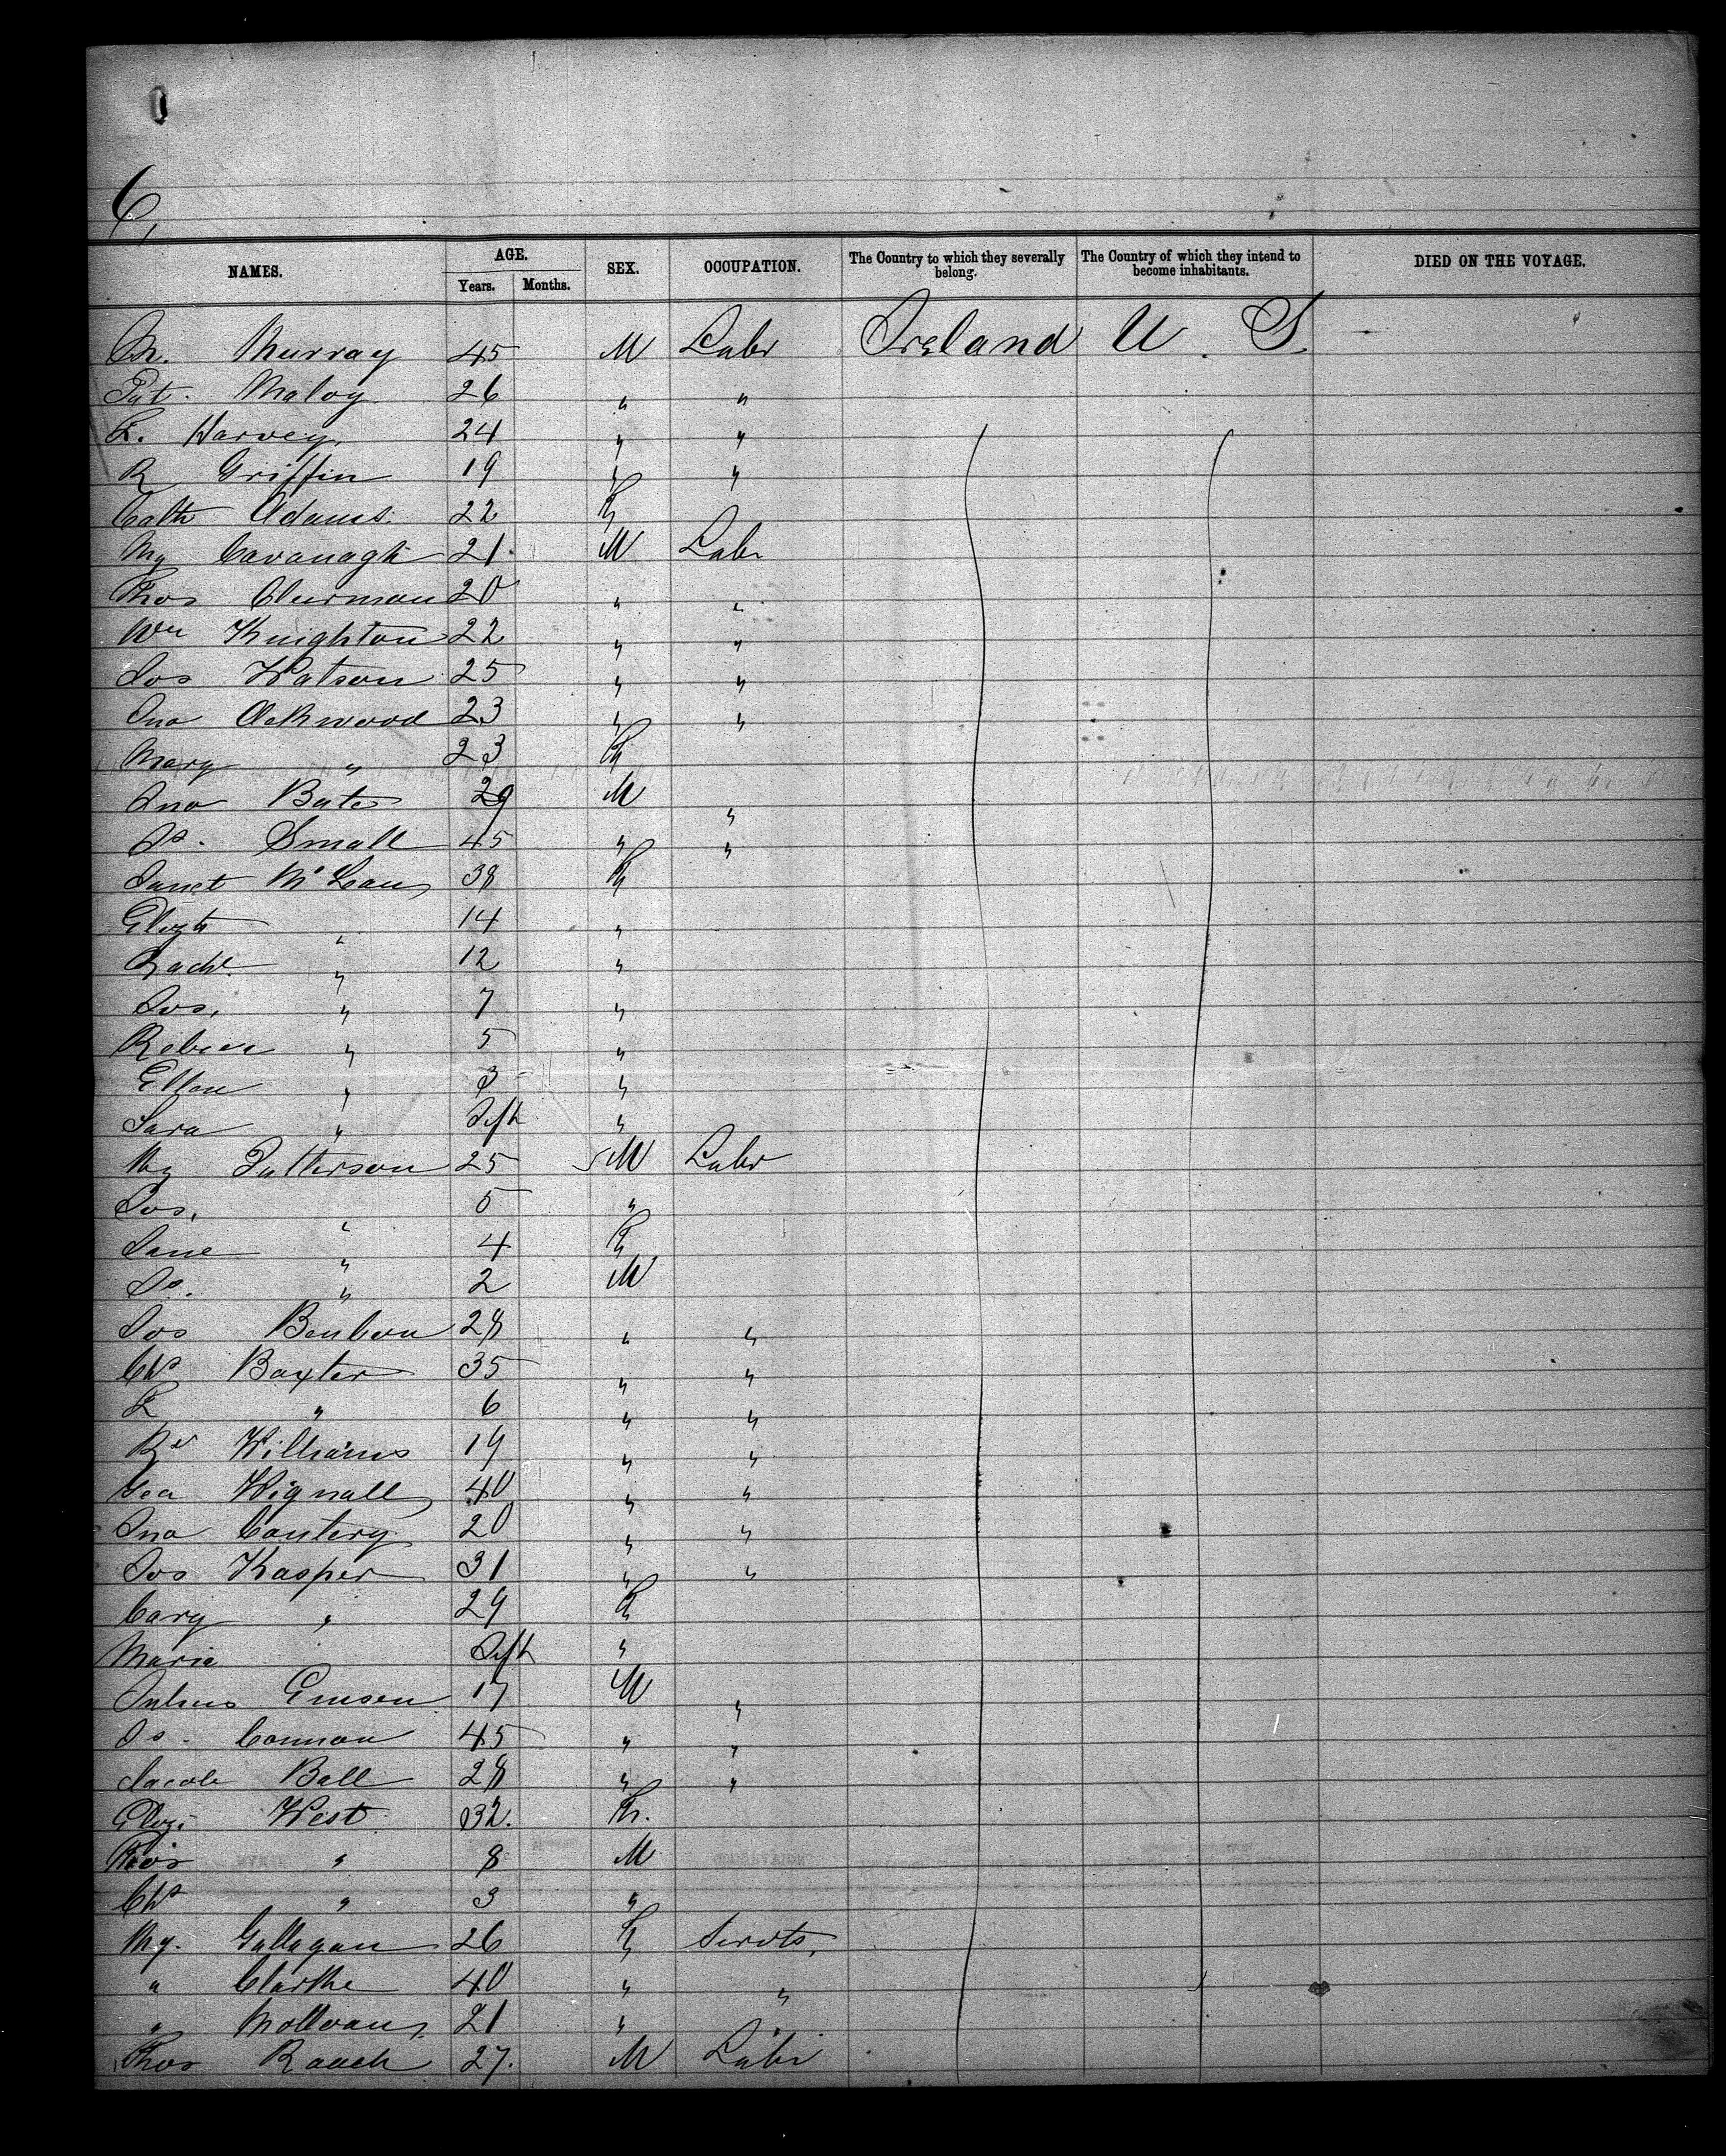 6,
NAMES. AGE. SEX. OCCUPATION. The Country to which they severally belong. The Country of which they intend to become inhabitants. DIED ON THE VOYAGE.
Years. Months.
M. Murray 45 M Labr Ireland U. S.
Pat. Maloy 26 " "
Harvey 24 " "
R Griffin 19 " "
Cath Adams. 22 F
My Cavanagh 21 M Labr
Thos 20 " "
Wm Knighton 22 " "
Jos Watson 25 " "
Jno Ackwood 23 " "
Mary " 23 F
Jno Bates 29 M "
Js. Small 45 " "
Janet McLean 38 F
Elizth " 14 "
Rachl " 12 "
Jos. " 7 "
Rebeca " 5 "
Ellen " 3 "
Sara " Inft "
My Patterson 25 M Labr
Jos. " 5 "
Jane " 4 F
Js. " 2 M
Jos 28 " "
Chs Baxter 35 " "
" 6 " "
Rd Williams 19 " "
Geo Wignall 40 " "
Jno 20 " "
Jos Kasper 31 " "
" 29 F
Maria Inft "
Julius 17 M "
Js. Connon 45 " "
Jacob Ball 28 " "
Eliz. West 32. F.
Thos " 8 M
Chs " 3 "
My. Gallagan 26 F Servts.
" Clarke 40 " "
" 21 "
Thos Roach 27. M Labr